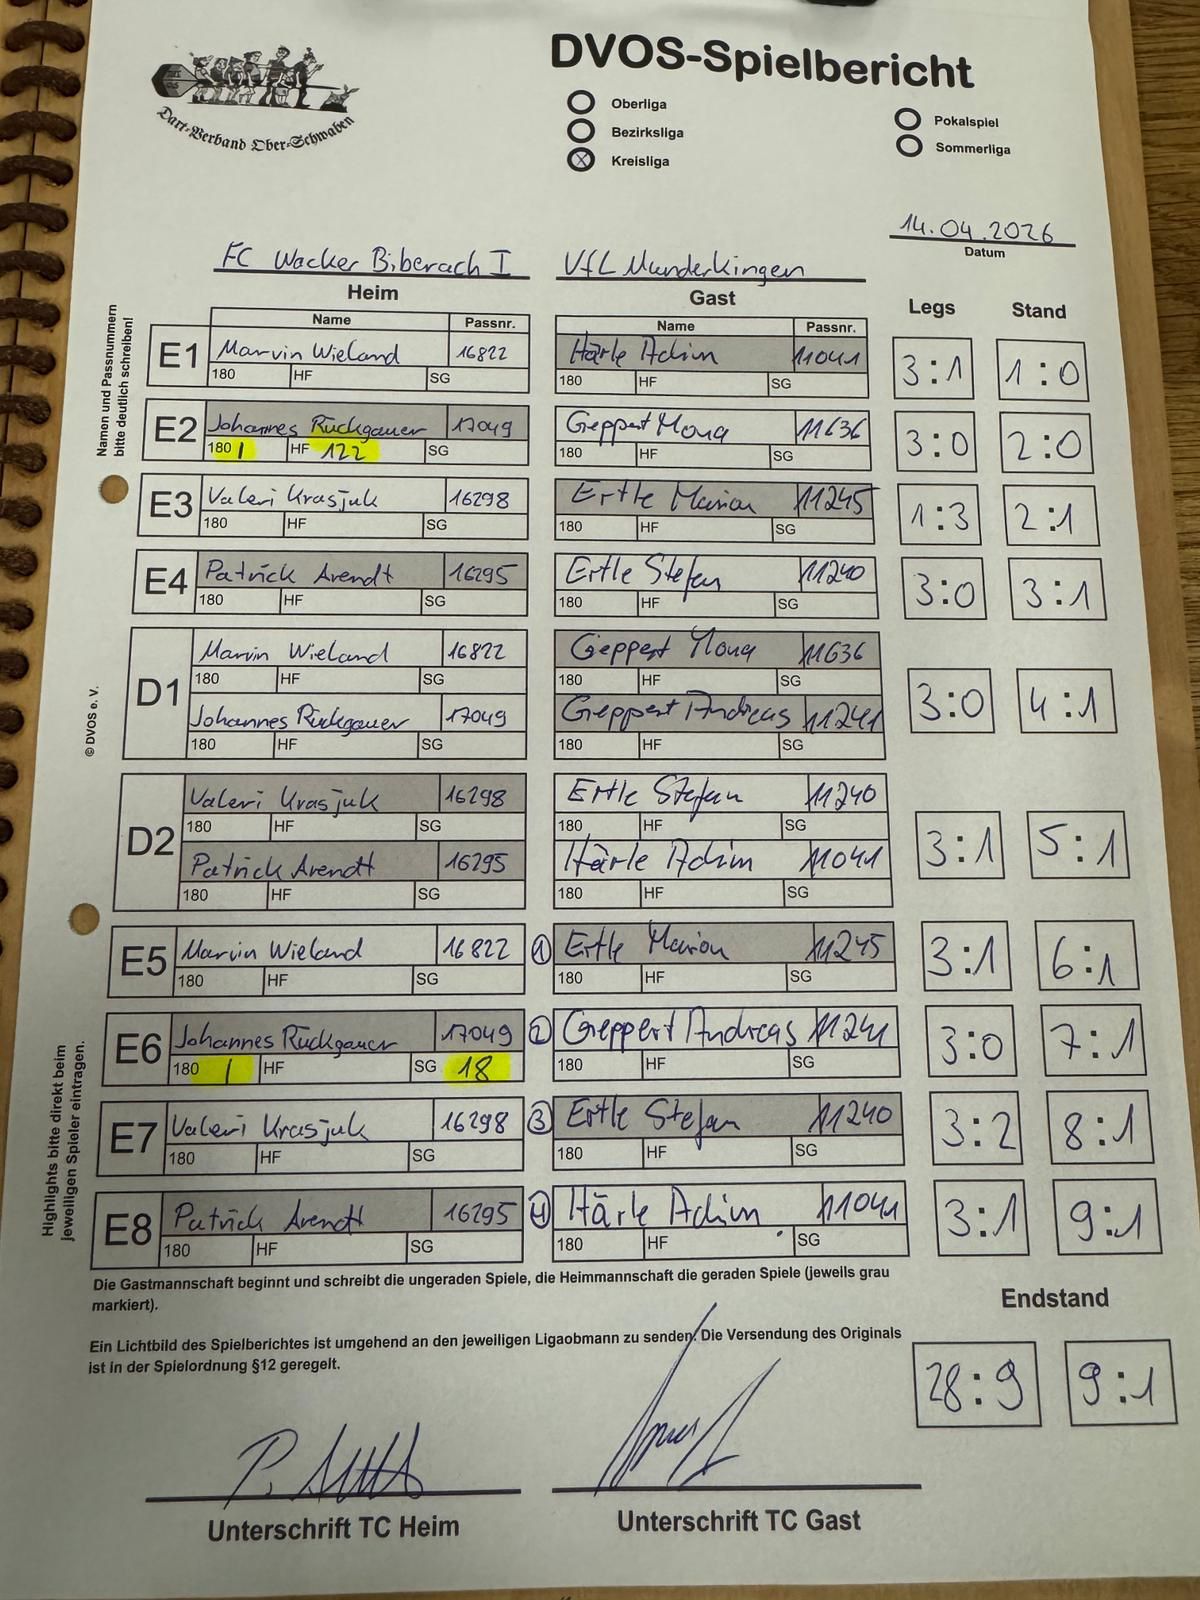 DVOS-Spielbericht
Dart-Verband Ober-Schwaben
Oberliga
Bezirksliga
Kreisliga
Pokalspiel
Sommerliga
14.04.2026
Datum
FC Wacker Biberach I
VfL Munderkingen
Heim
Gast
Legs
Stand
Namen und Passnummern
bitte deutlich schreiben!
Name Passnr. Name Passnr.
E1 Marvin Wieland 16822 Härle Achim 11041 3:1 1:0
180 HF SG 180 HF SG
E2 Johannes Rückgauer 17049 Geppert Mona 11636 3:0 2:0
180 1 HF 122 SG 180 HF SG
E3 Valeri Krasjuk 16298 Ertle Marion 11245 1:3 2:1
180 HF SG 180 HF SG
E4 Patrick Arendt 16295 Ertle Stefan 11240 3:0 3:1
180 HF SG 180 HF SG
D1 Marvin Wieland 16822 Geppert Mona 11636 3:0 4:1
180 HF SG 180 HF SG
Johannes Rückgauer 17049 Geppert Andreas 11241
180 HF SG 180 HF SG
© DVOS e. V.
D2 Valeri Krasjuk 16298 Ertle Stefan 11240 3:1 5:1
180 HF SG 180 HF SG
Patrick Arendt 16295 Härle Achim 11041
180 HF SG 180 HF SG
E5 Marvin Wieland 16822 1 Ertle Marion 11245 3:1 6:1
180 HF SG 180 HF SG
E6 Johannes Rückgauer 17049 2 Geppert Andreas 11241 3:0 7:1
180 1 HF SG 18 180 HF SG
E7 Valeri Krasjuk 16298 3 Ertle Stefan 11240 3:2 8:1
180 HF SG 180 HF SG
E8 Patrick Arendt 16295 4 Härle Achim 11041 3:1 9:1
180 HF SG 180 HF SG
Highlights bitte direkt beim
jeweiligen Spieler eintragen.
Die Gastmannschaft beginnt und schreibt die ungeraden Spiele, die Heimmannschaft die geraden Spiele (jeweils grau
markiert).
Endstand
Ein Lichtbild des Spielberichtes ist umgehend an den jeweiligen Ligaobmann zu senden. Die Versendung des Originals
ist in der Spielordnung §12 geregelt.
28:9 9:1
Unterschrift TC Heim
Unterschrift TC Gast